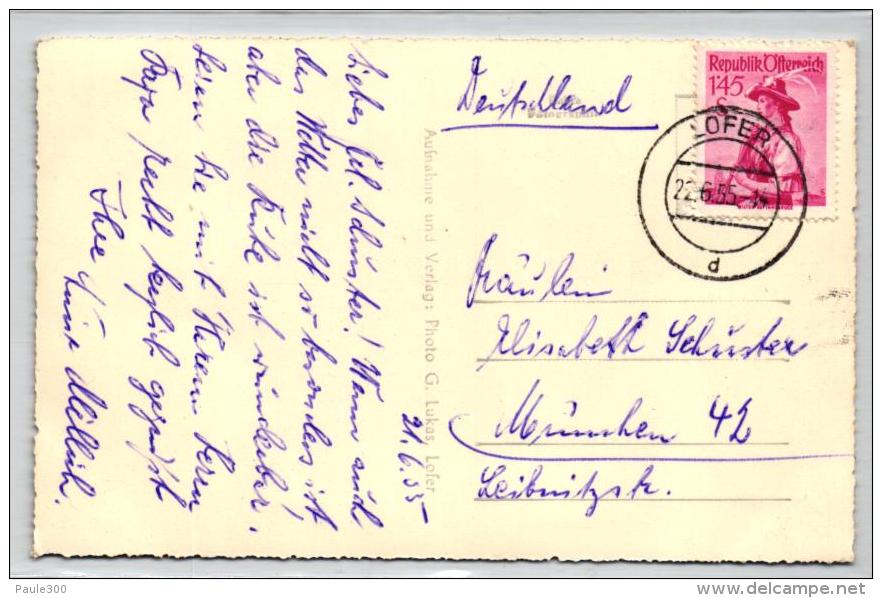 Liebes Frl. Schuster! Wenn auch
das Wetter nicht so besonders ist
aber die Ruhe ist wunderbar.
Seien Sie mit Ihrem Herrn
Papa recht herzlich gegrüßt
Ihre
21.6.55
Aufnahme und Verlag: Photo G. Lukas, Lofer
Deutschland
Republik Österreich
1'45
S
LOFER
22.6.55
d
Fräulein
Elisabeth Schuster
München 42
Leibnitzstr.
Paule300
delcampe.net